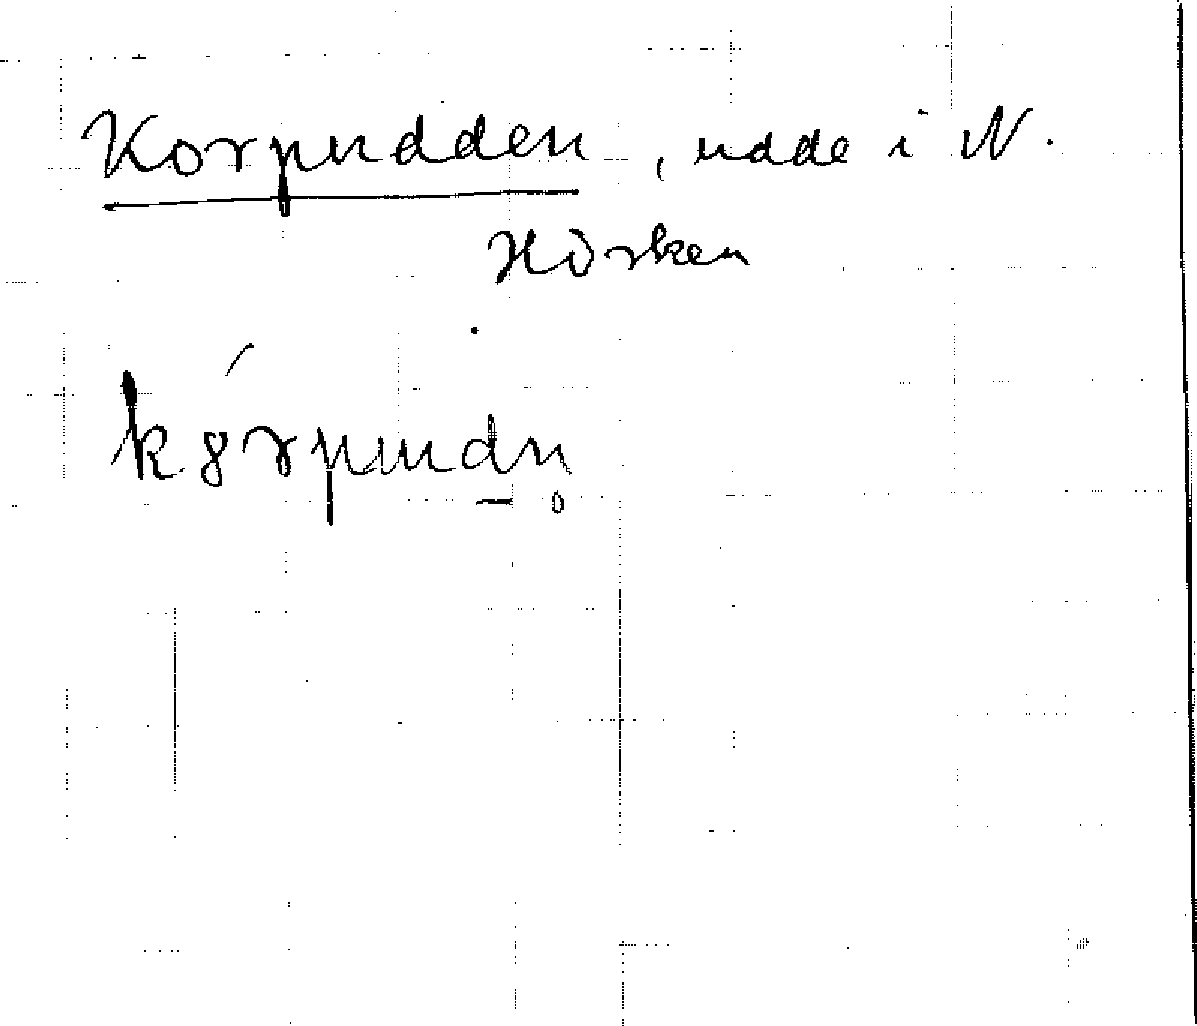 Korpudden, udde i N.
Hörken
kȣ́rpud̲n̥